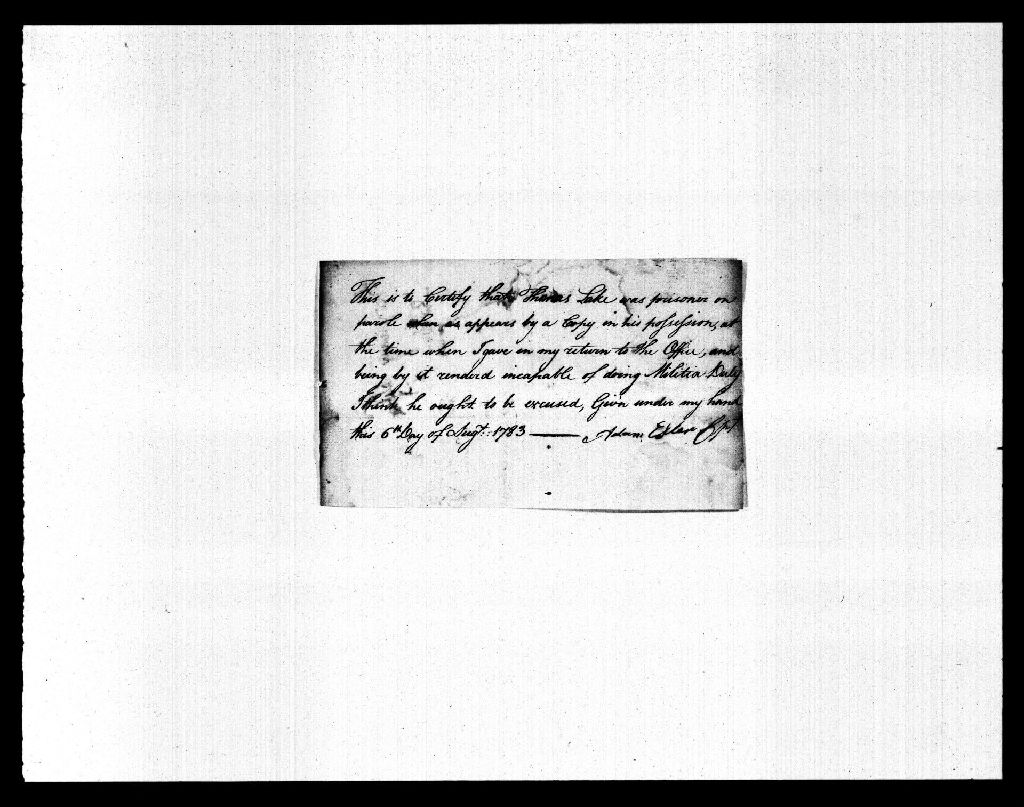 This is to Certify that Thomas Lake was prisoner on
parole when as appears by a Copy in his possession, at
the time when I gave in my return to the Office, and
being by it renderd incapable of doing Militia Duty
I think he ought to be excused, Givn under my hand
this 6th Day of Augt. 1783 — Adam